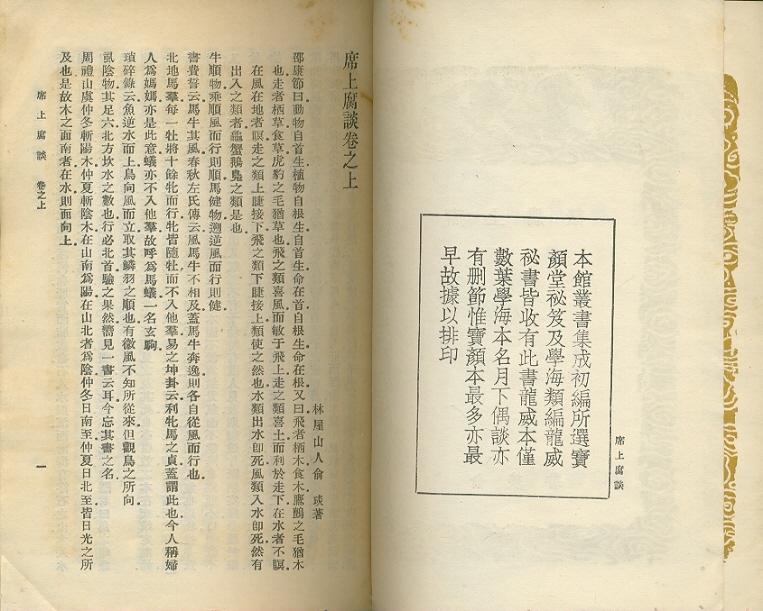 本館叢書集成初編所選寶
顏堂祕笈及學海類編龍威
祕書皆收有此書龍威本僅
數葉學海本名月下偶談亦
有刪節惟寶顏本最多亦最
早故據以排印
席上腐談
席上腐談卷之上
林屋山人俞 琰著
邵康節曰動物自首生植物自根生自首生命在首自根生命在根又曰飛者栖木食木鷹鸇之毛猶木
也走者栖草食草虎豹之毛猶草也飛之類喜風而敏于飛上走之類喜土而利於走下在水者不瞑
在風在地者瞑走之類上睫接下飛之類下睫接上類使之然也水類出水卽死風類入水卽死然有
出入之類者龜蟹鵝鳧之類是也
牛順物乘順風而行則順馬健物遡逆風而行則健
書費誓云馬牛其風春秋左氏傳云風馬牛不相及蓋馬牛奔逸則各自從風而行也
北地馬羣每一牡將十餘牝而行牝皆隨牡而不入他羣易之坤卦云利牝馬之貞蓋謂此也今人稱婦
人爲媽媽亦是此意蟻亦不入他羣故呼爲馬蟻一名玄駒
瑣碎錄云魚逆水而上鳥向風而立取其鱗羽之順也有微風不知所從來但觀鳥之所向
虱陰物其足六北方坎水之數也行必北首驗之果然嚮見一書云耳今忘其書之名
周禮山虞仲冬斬陽木仲夏斬陰木在山南爲陽在山北者爲陰仲冬日南至仲夏日北至皆日光之所
及也是故木之面南者在水則面向上
席上腐談 卷之上
一